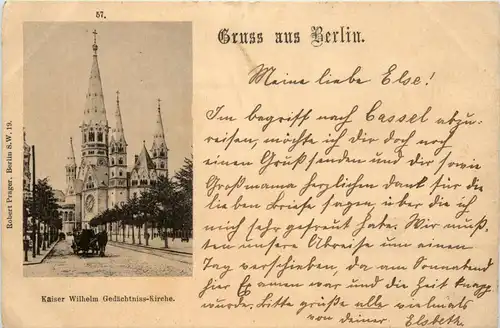 57.
Gruss aus Berlin.
Robert Prager, Berlin S.W. 19.
Kaiser Wilhelm Gedächtniss-Kirche.
Meine liebe Else!
Im begriff nach Cassel abzu-
reisen, möchte ich dir doch noch
einen Gruß senden und dir sowie
Großmama herzlichen Dank für die
lieben Briefe sagen, über die ich
mich sehr gefreut habe. Wir muß-
ten unsere Abreise um einen
Tag verschieben, da am Sonnabend
hier Examen war und die Zeit knapp
wurde, bitte grüße alle vielmals
von deiner Elsbeth.